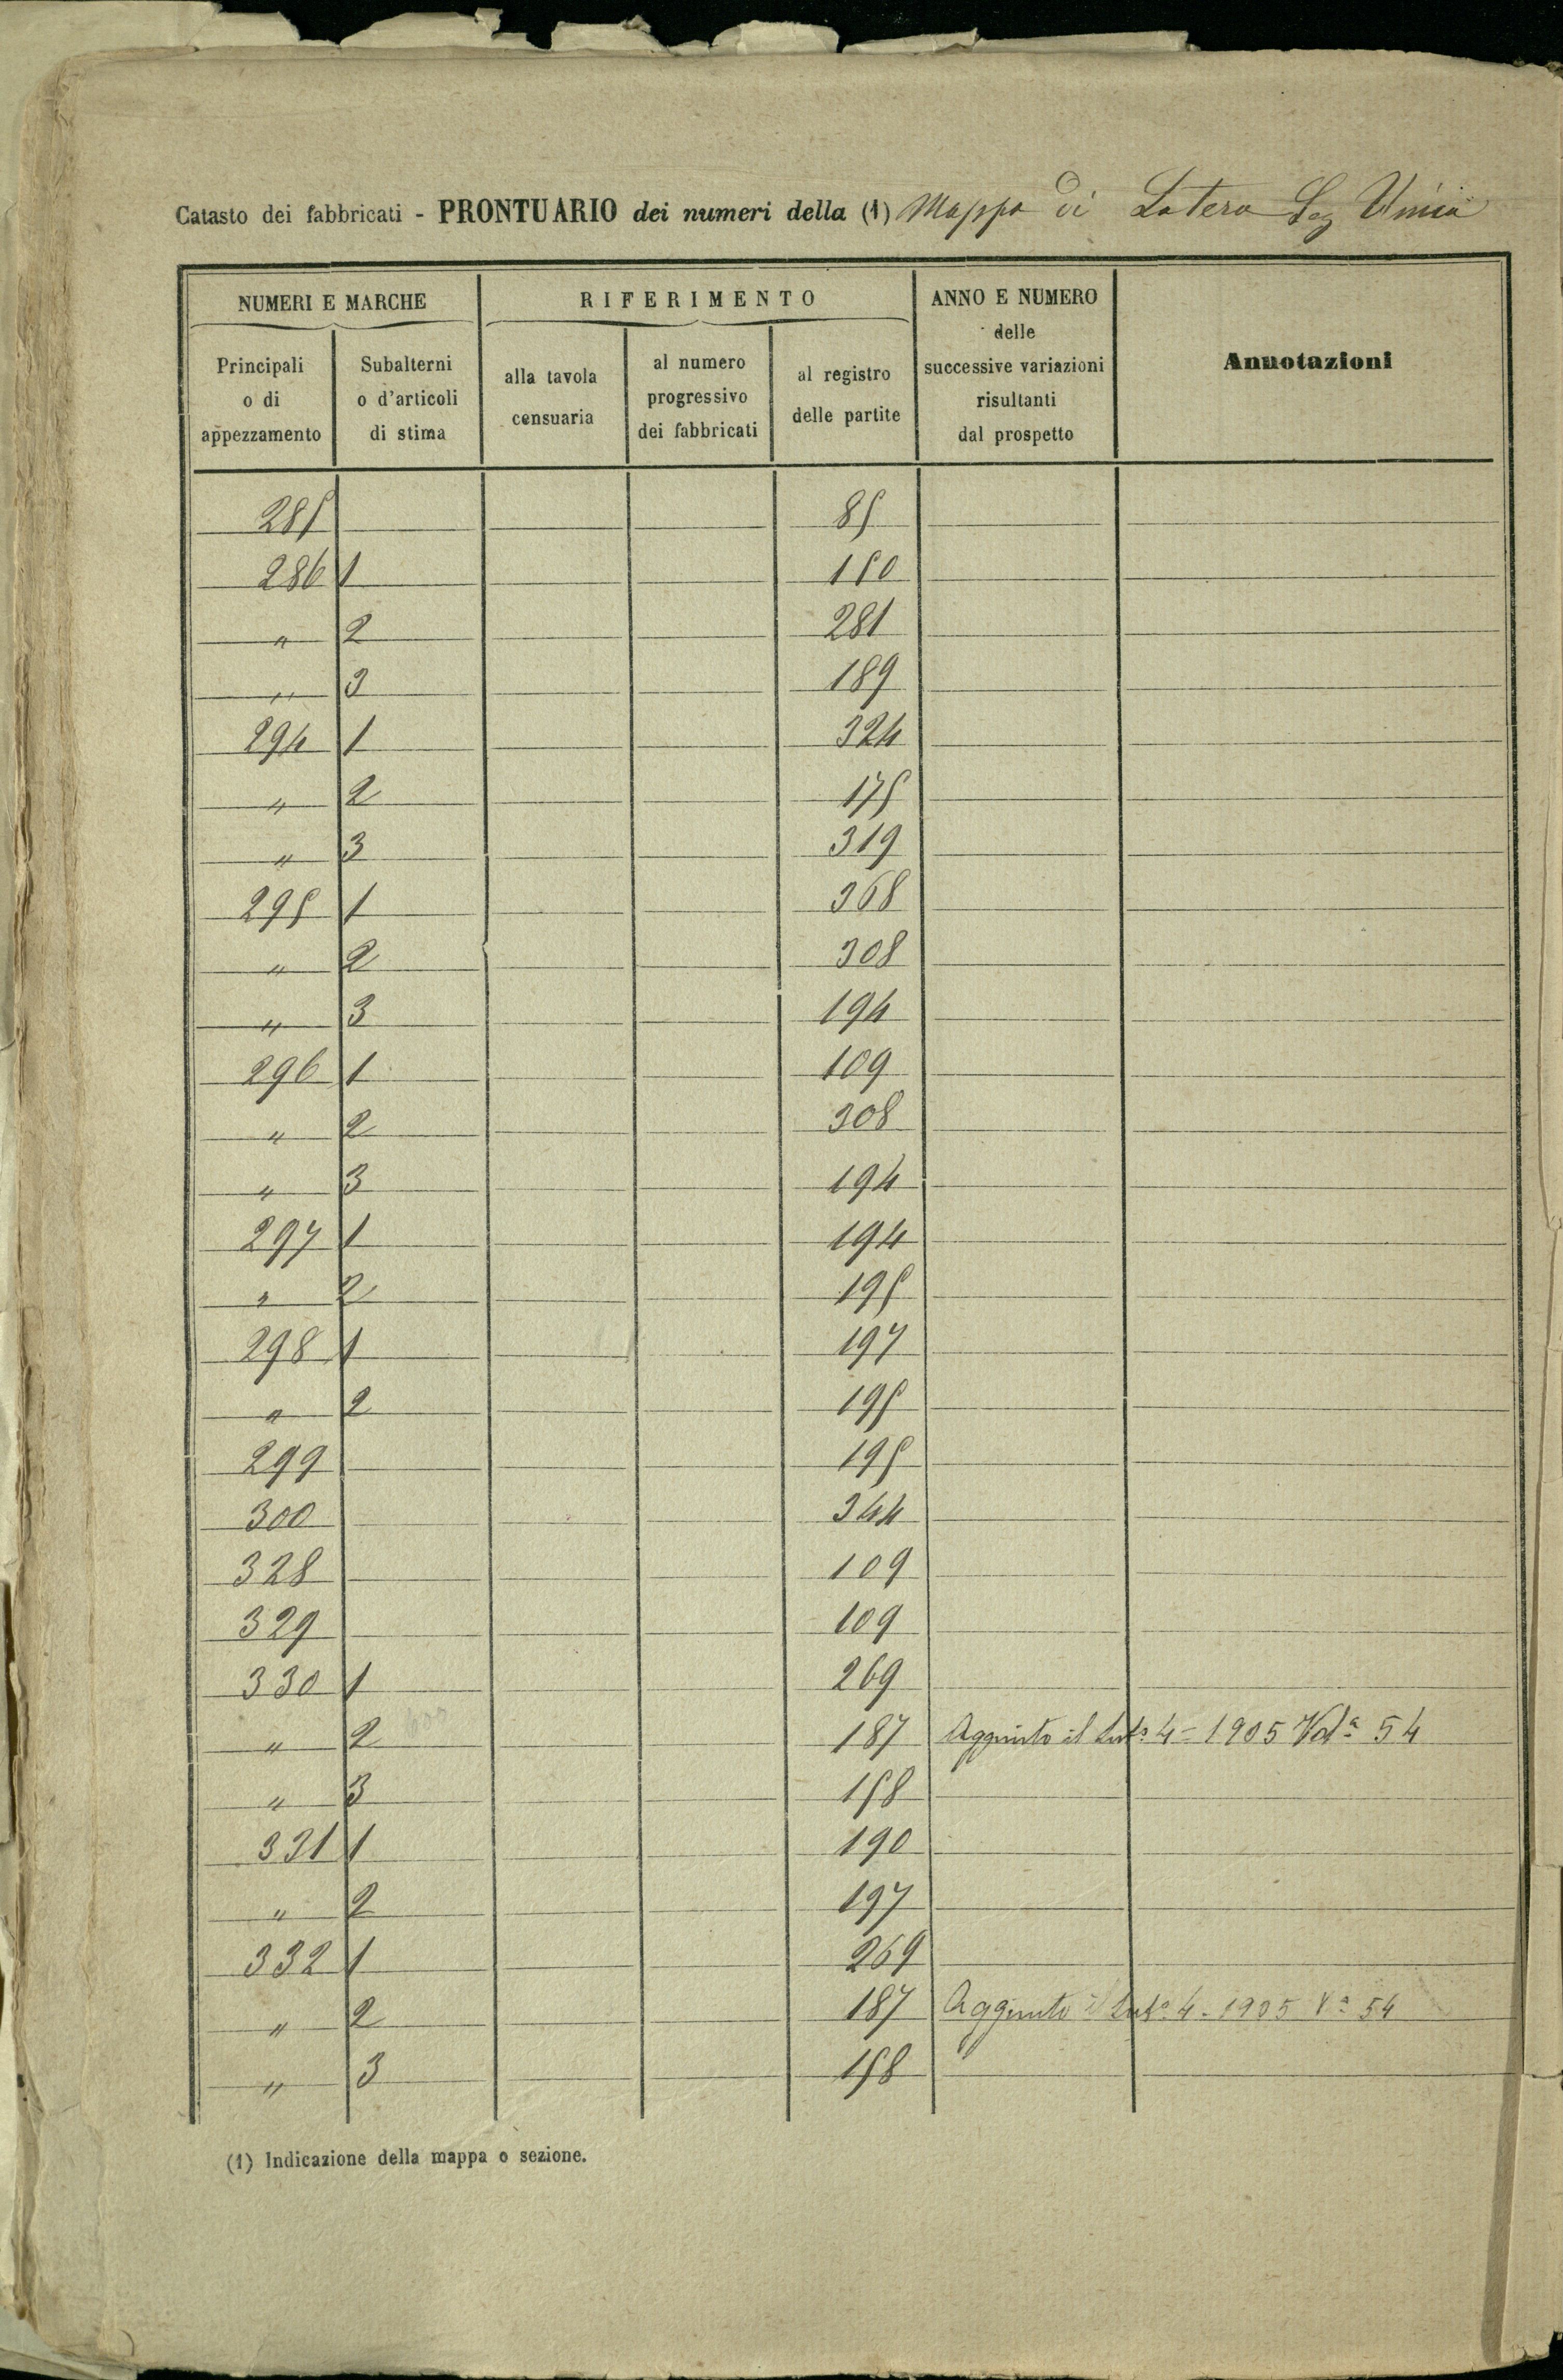 Catasto dei fabbricati - PRONTUARIO dei numeri della (1) Mappa di Latera Sez Unica
NUMERI E MARCHE
RIFERIMENTO
ANNO E NUMERO
delle
successive variazioni
risultanti
dal prospetto
Annotazioni
Principali
o di
appezzamento
Subalterni
o d'articoli
di stima
alla tavola
censuaria
al numero
progressivo
dei fabbricati
al registro
delle partite
285 85
286 1 150
" 2 281
" 3 189
294 1 324
" 2 175
" 3 319
295 1 368
" 2 308
" 3 194
296 1 109
" 2 308
" 3 194
297 1 194
" 2 195
298 1 197
" 2 195
299 195
300 344
328 109
329 109
330 1 269
" 2 187 Aggiunto il Sub.o 4 = 1905 Vol.a 54
" 3 158
331 1 190
" 2 197
332 1 269
" 2 187 Aggiunto il Sub.o 4 - 1905 V.a 54
" 3 158
(1) Indicazione della mappa o sezione.